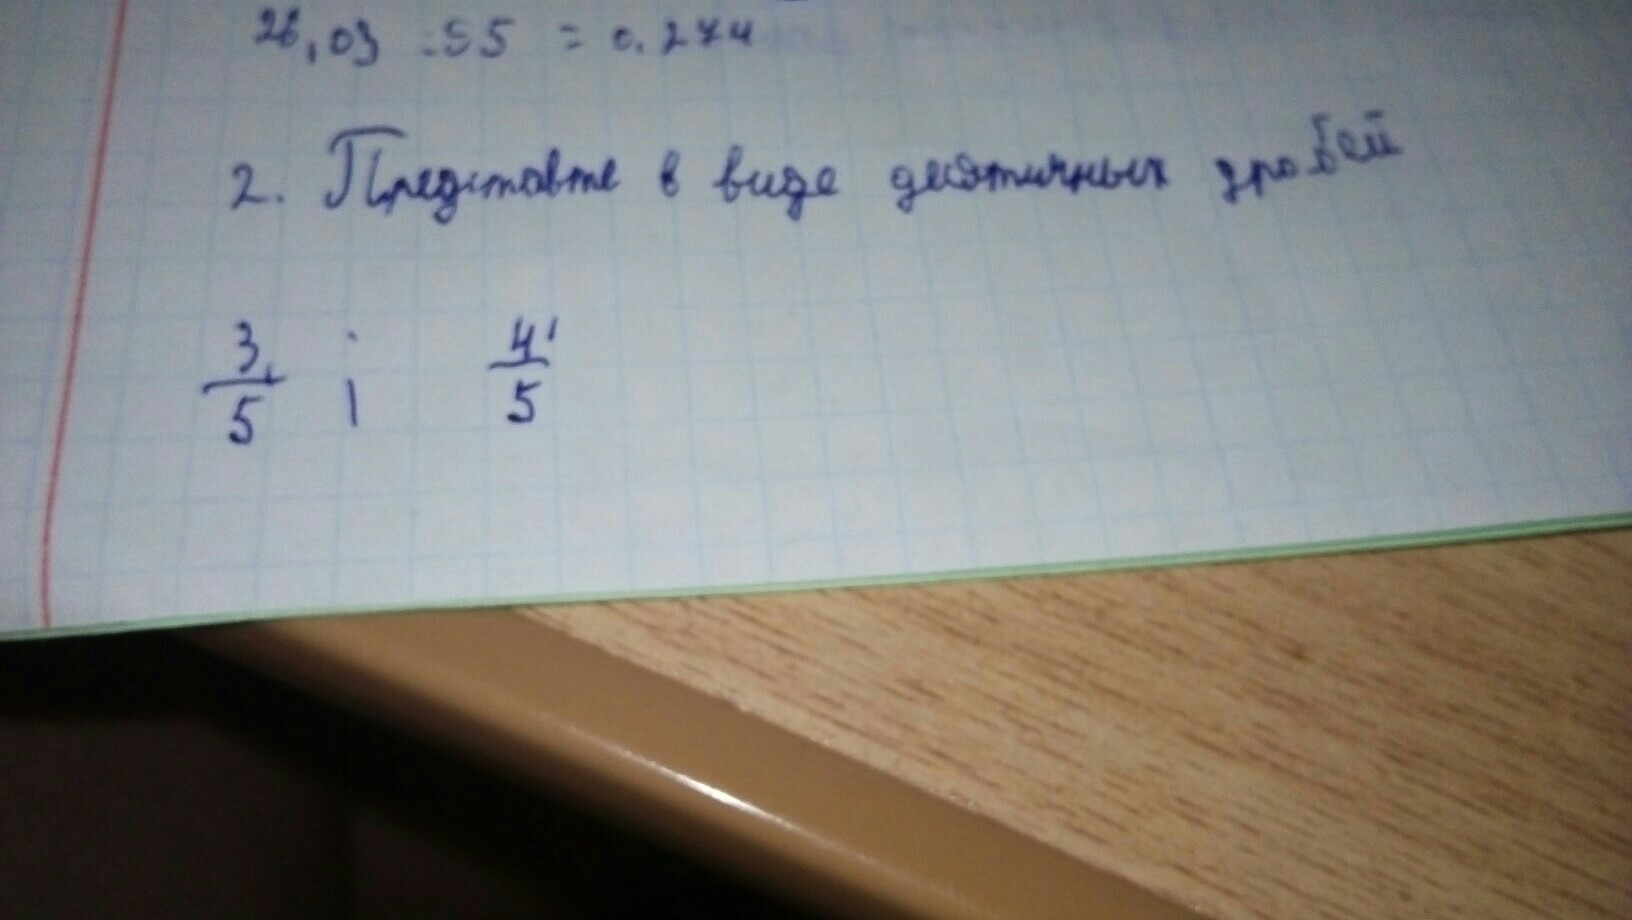 26,03 :95 = 0.274
2. Представте в виде десятичных дробей
3/5 ; 4/5